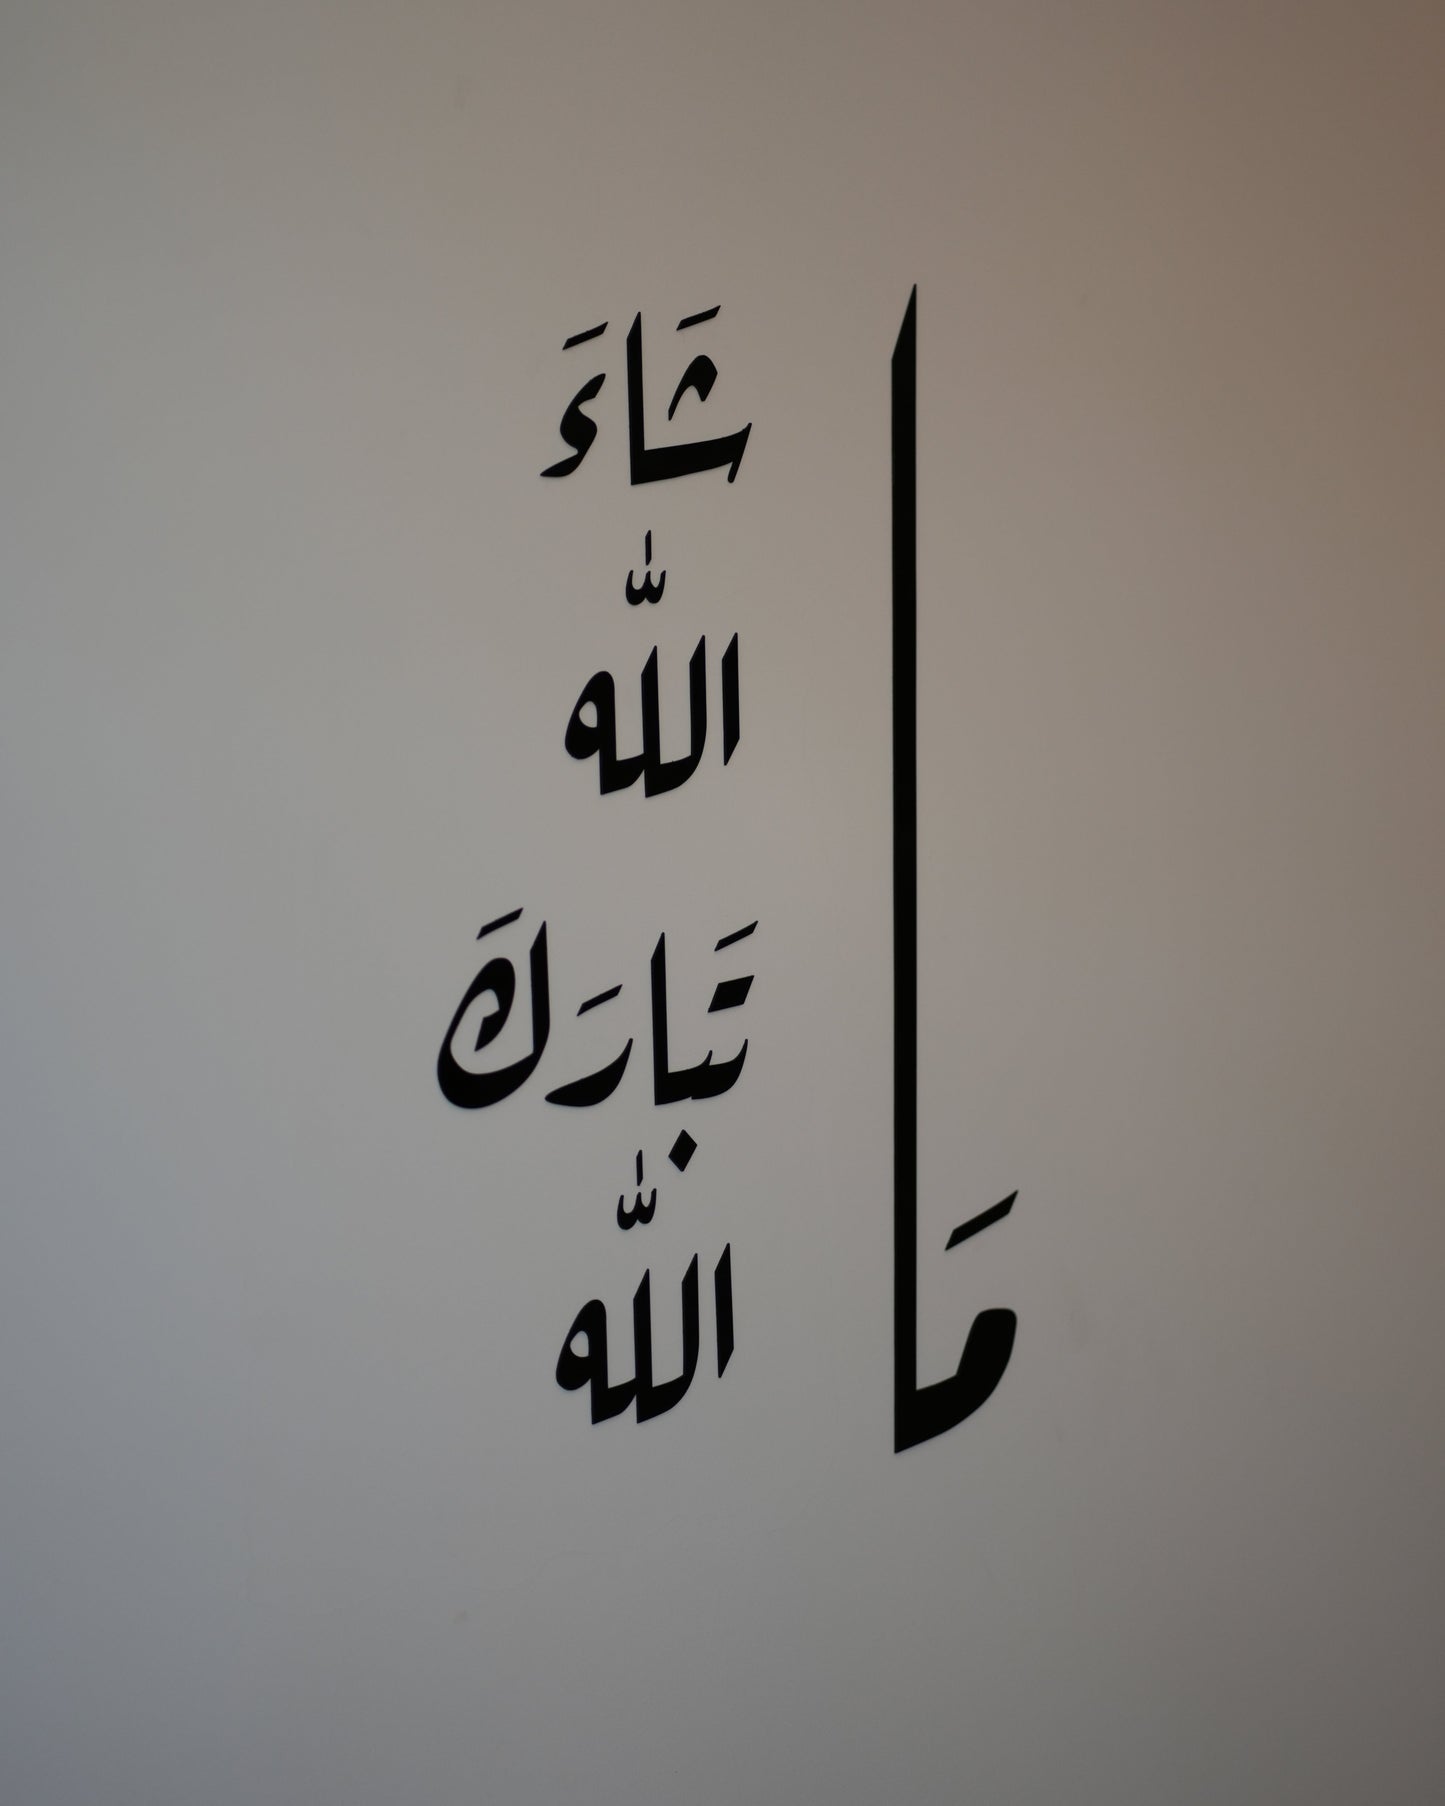 مَا
شَاءَ
اللّٰه
تَبَارَكَ
اللّٰه